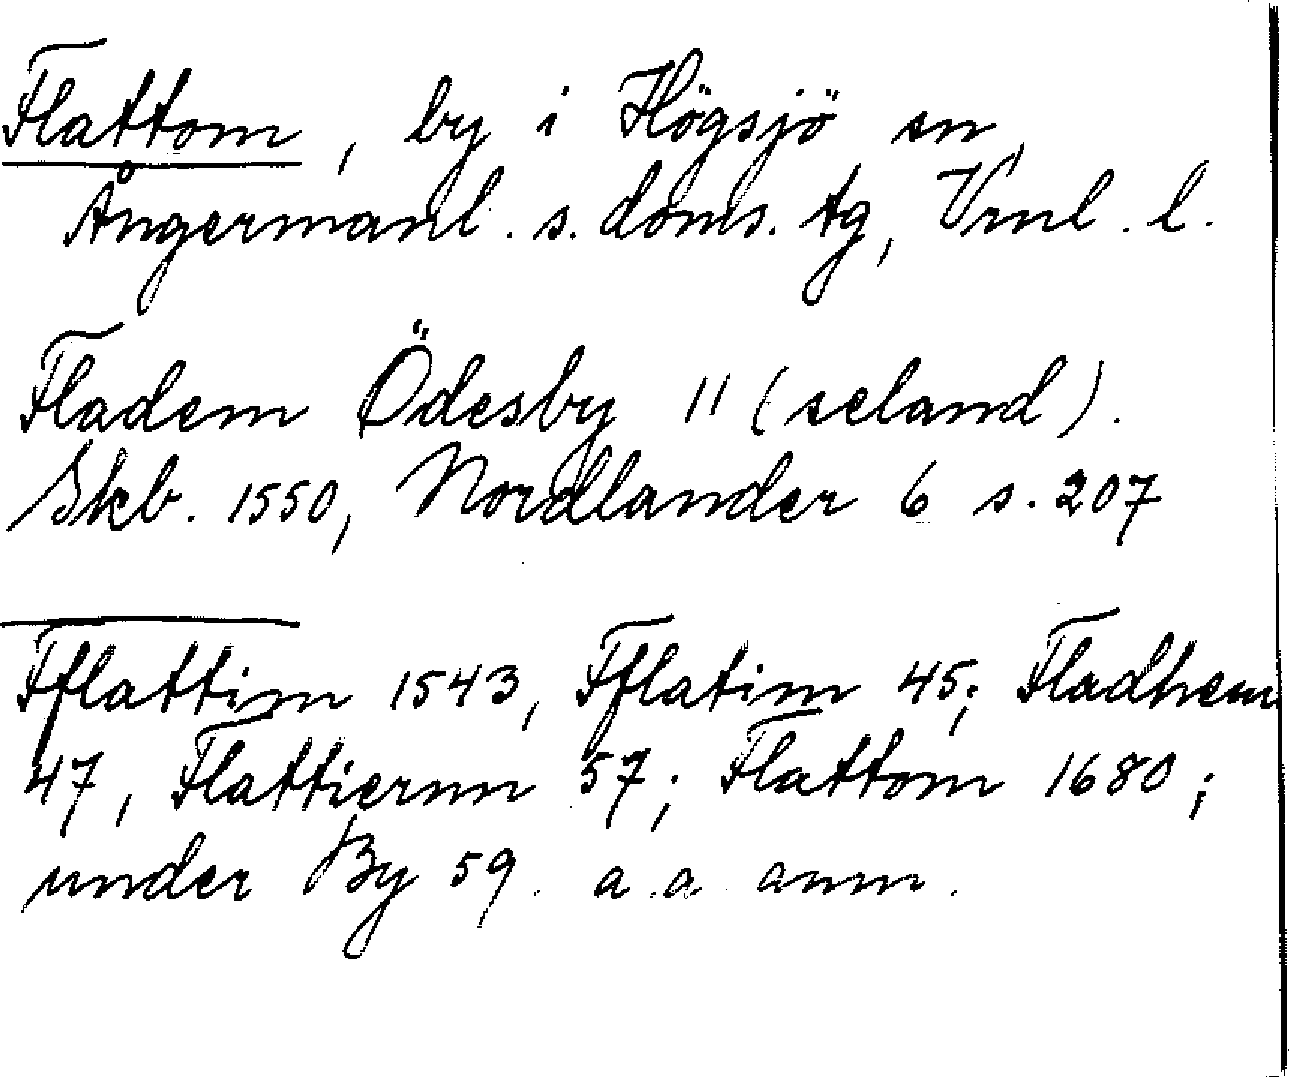 Flattom, by i Högsjö sn,
Ångermanl. s. doms. tg, Vrnl. l.
Fladem Ödesby 11 (seland).
Skb. 1550, Nordlander 6 s. 207
Fflattim 1543, Fflatim 45; Fladhem
47, Flattiernn 57; Flattom 1680;
under By 59. a.a. anm.